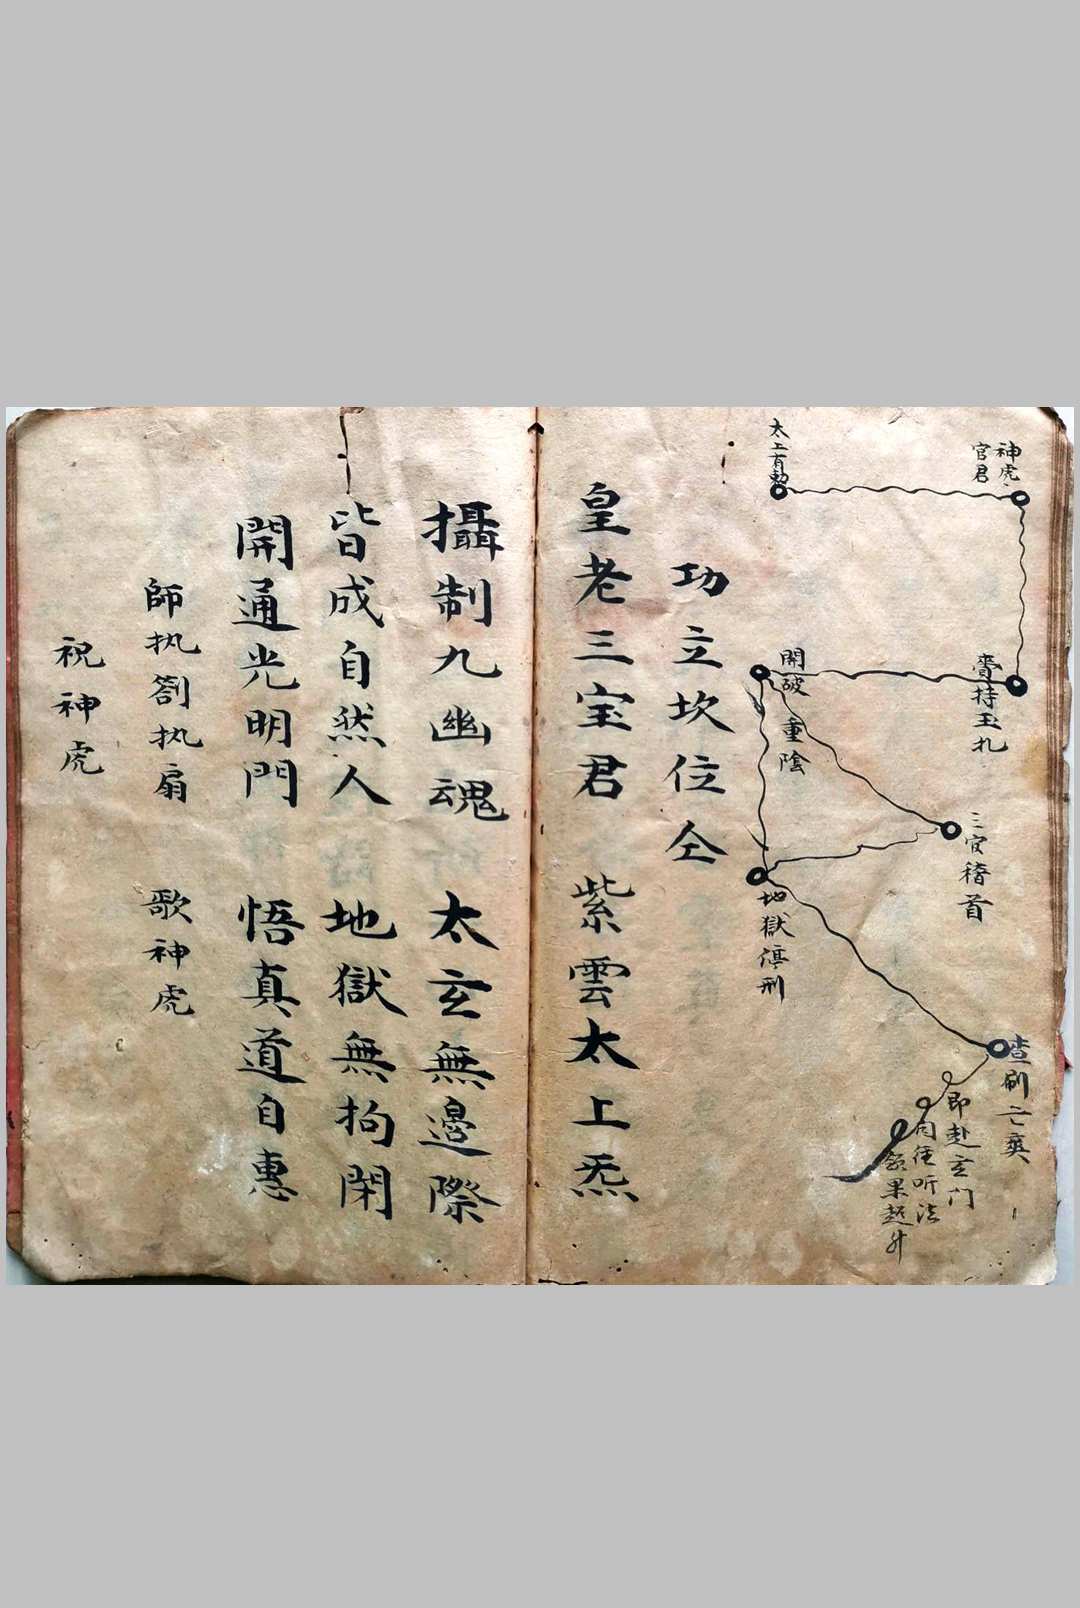 太上有勅
神虎
官君
賫持玉札
開破重陰
三官稽首
地獄停刑
查刷亡䰟
即赴玄门
同徃听法
果超升
功立坎位仝
皇老三宝君　紫雲太上炁
攝制九幽魂　太玄無邊際
皆成自然人　地獄無拘閑
開通光明門　悟真道自惠
師执劄执扇　歌神虎
祝神虎